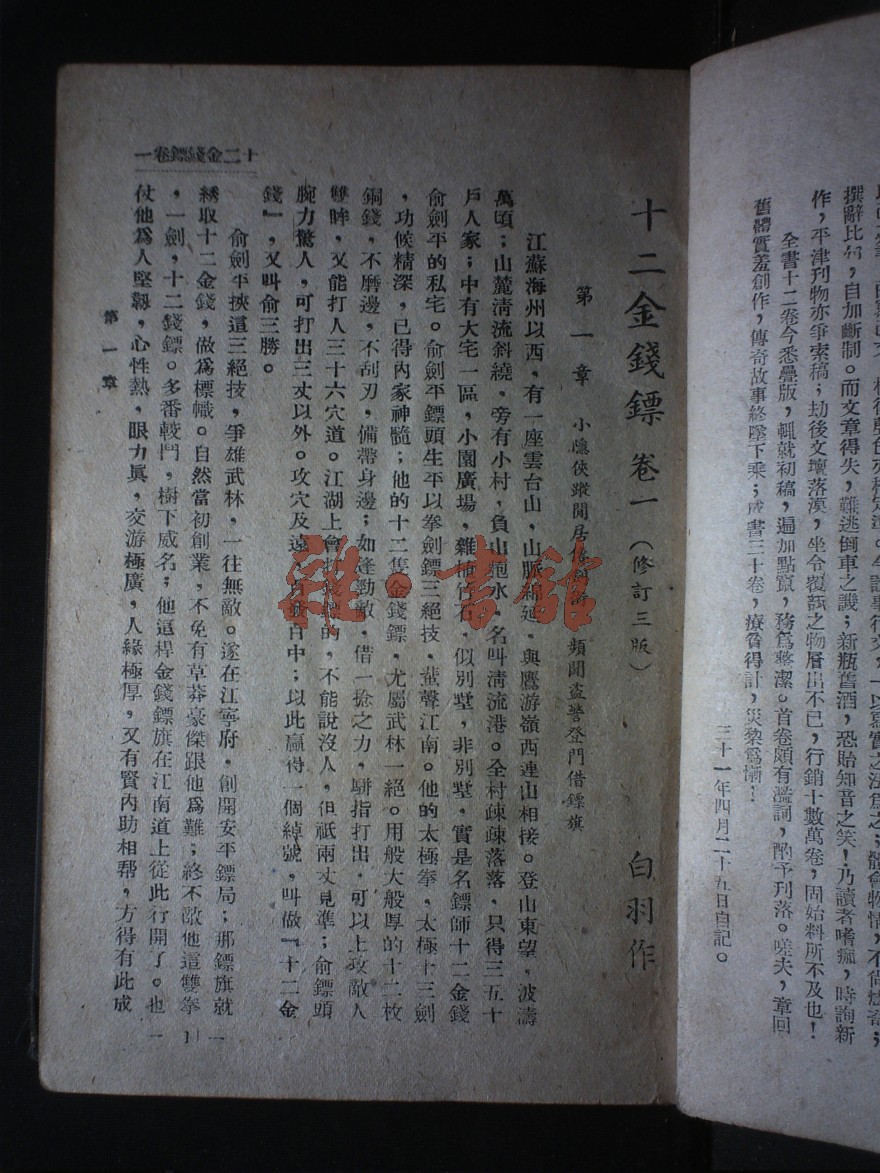 撰辭比稱,自加斷制。而文章得失,難逃倒車之譏;新瓶舊酒,恐貽知音之笑!乃讀者嗜痂,時詢新
作,平津刊物亦爭索稿;劫後文壇落漠,坐令覆瓿之物層出不已,行銷十數萬卷,固始料所不及也!
全書十二卷今悉疊版,輒就初稿,遍加點竄,務爲整潔。首卷頗有濫詞,酌予刊落。嗟夫,章回
舊體實羞創作,傳奇故事終墜下乘;成書三十卷,療貧得計,災棃爲慚!
三十一年四月二十五日自記。
十二金錢鏢 卷一 (修訂三版) 白羽作
第一章 小隱俠蹤閒居 頻聞盜警登門借鏢旗
江蘇海州以西,有一座雲台山,山脈綿延,與鷹游嶺西連山相接。登山東望,波濤
萬頃;山麓清流斜繞,旁有小村,負山抱水,名叫清流港。全村疎疎落落,只得三五十
戶人家;中有大宅一區,小園廣場,雜植竹石,似別墅,非別墅,實是名鏢師十二金錢
俞劍平的私宅。俞劍平鏢頭生平以拳劍鏢三絕技,蜚聲江南。他的太極拳,太極十三劍
,功候精深,已得內家神髓;他的十二隻金錢鏢,尤屬武林一絕。用般大般厚的十二枚
銅錢,不磨邊,不刮刃,備帶身邊;如逢勁敵,借一捻之力,駢指打出,可以上攻敵人
雙眸,又能打人三十六穴道。江湖上會打的,不能說沒人,但祇兩丈見準;俞鏢頭
腕力驚人,可打出三丈以外。攻穴及遠,百發百中;以此贏得一個綽號,叫做『十二金
錢』,又叫俞三勝。
俞劍平挾這三絕技,爭雄武林,一往無敵。遂在江寧府,創開安平鏢局;那鏢旗就
綉取十二金錢,做爲標幟。自然當初創業,不免有草莽豪傑跟他爲難;終不敵他這雙拳
,一劍,十二錢鏢。多番較鬥,樹下威名;他這桿金錢鏢旗在江南道上從此行開了。也
仗他爲人堅韌,心性熱,眼力眞,交游極廣,人緣極厚,又有賢內助相帮,方得有此成
十二金錢鏢卷一
第一章
雜·書館